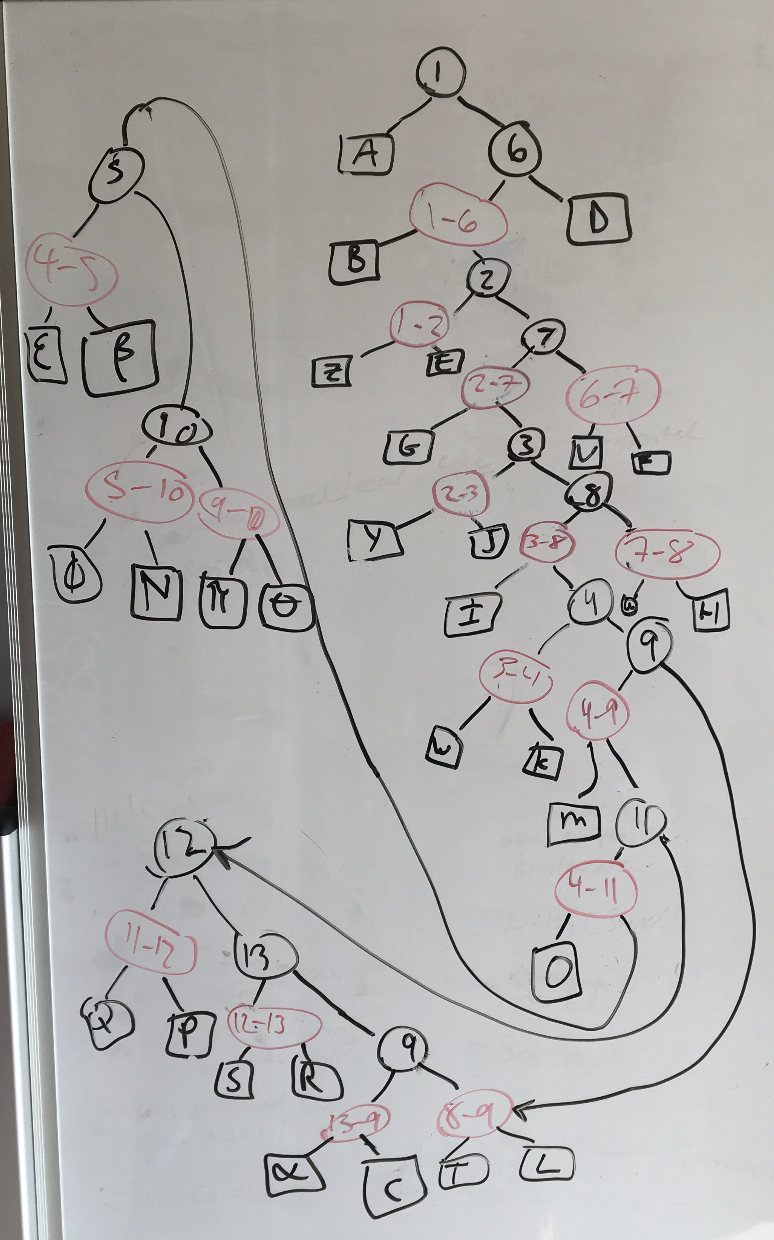 1
A
6
1-6
D
B
2
1-2
7
Z
E
2-7
6-7
G
U
F
3
2-3
8
Y
J
3-8
7-8
I
4
H
3-4
9
W
K
4-9
m
11
4-11
O
5
4-5
ε
β
10
5-10
9-10
Φ
N
π
θ
12
11-12
13
Q
P
12-13
S
R
9
13-9
8-9
α
C
T
L